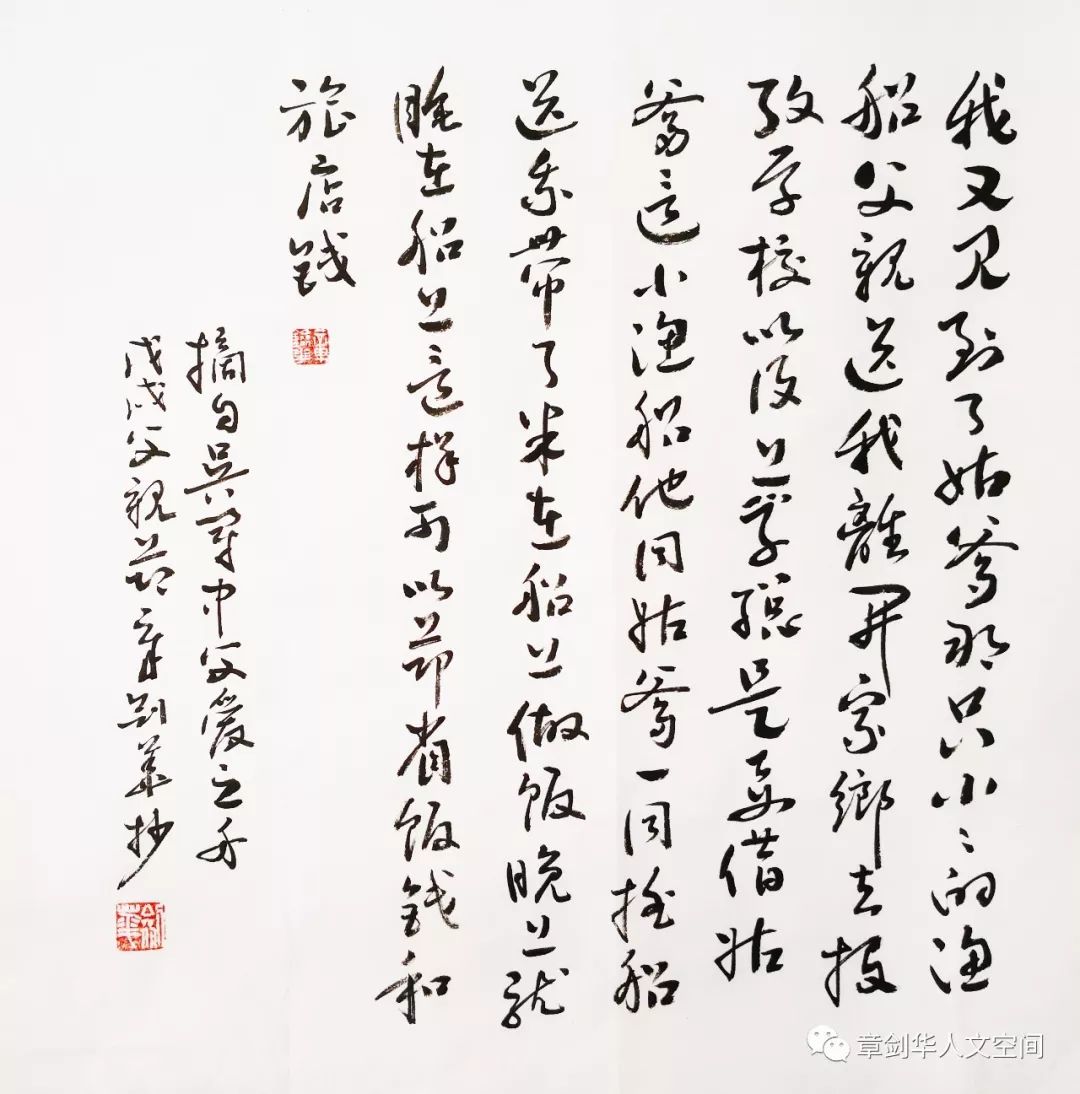 我又见到了姑爹那只小小的渔
船父親送我離开家鄉去投
考学校以及上学總是要借姑
爹这小渔船他同姑爹一同摇船
送我带了米在船上做饭晚上就
睡在船上这样可以节省饭钱和
旅店钱
摘自吴冠中父爱之舟
戊戌父親节章剑華抄
章剑华人文空间